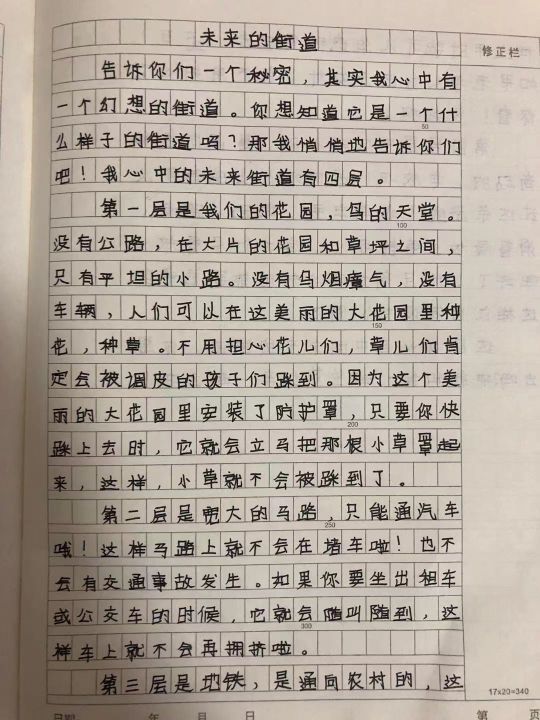 未来的街道
修正栏
告诉你们一个秘密，其实我心中有
一个幻想的街道。你想知道它是一个什
50
么样子的街道吗？那我悄悄地告诉你们
吧！我心中的未来街道有四层。
第一层是我们的花园，鸟的天堂。
100
没有公路，在大片的花园和草坪之间，
只有平坦的小路。没有乌烟瘴气，没有
车辆，人们可以在这美丽的大花园里种
150
花，种草。不用担心花儿们，草儿们肯
定会被调皮的孩子们踩到。因为这个美
丽的大花园里安装了防护罩，只要你快
200
踩上去时，它就会立马把那根小草罩起
来，这样，小草就不会被踩到了。
第二层是宽大的马路，只能通汽车
250
哦！这样马路上就不会在堵车啦！也不
会有交通事故发生。如果你要坐出租车
或公交车的时候，它就会随叫随到，这
300
样车上就不会再拥挤啦。
第三层是地铁，是通向农村的，这
17x20=340
日期 年 月 日 第 页